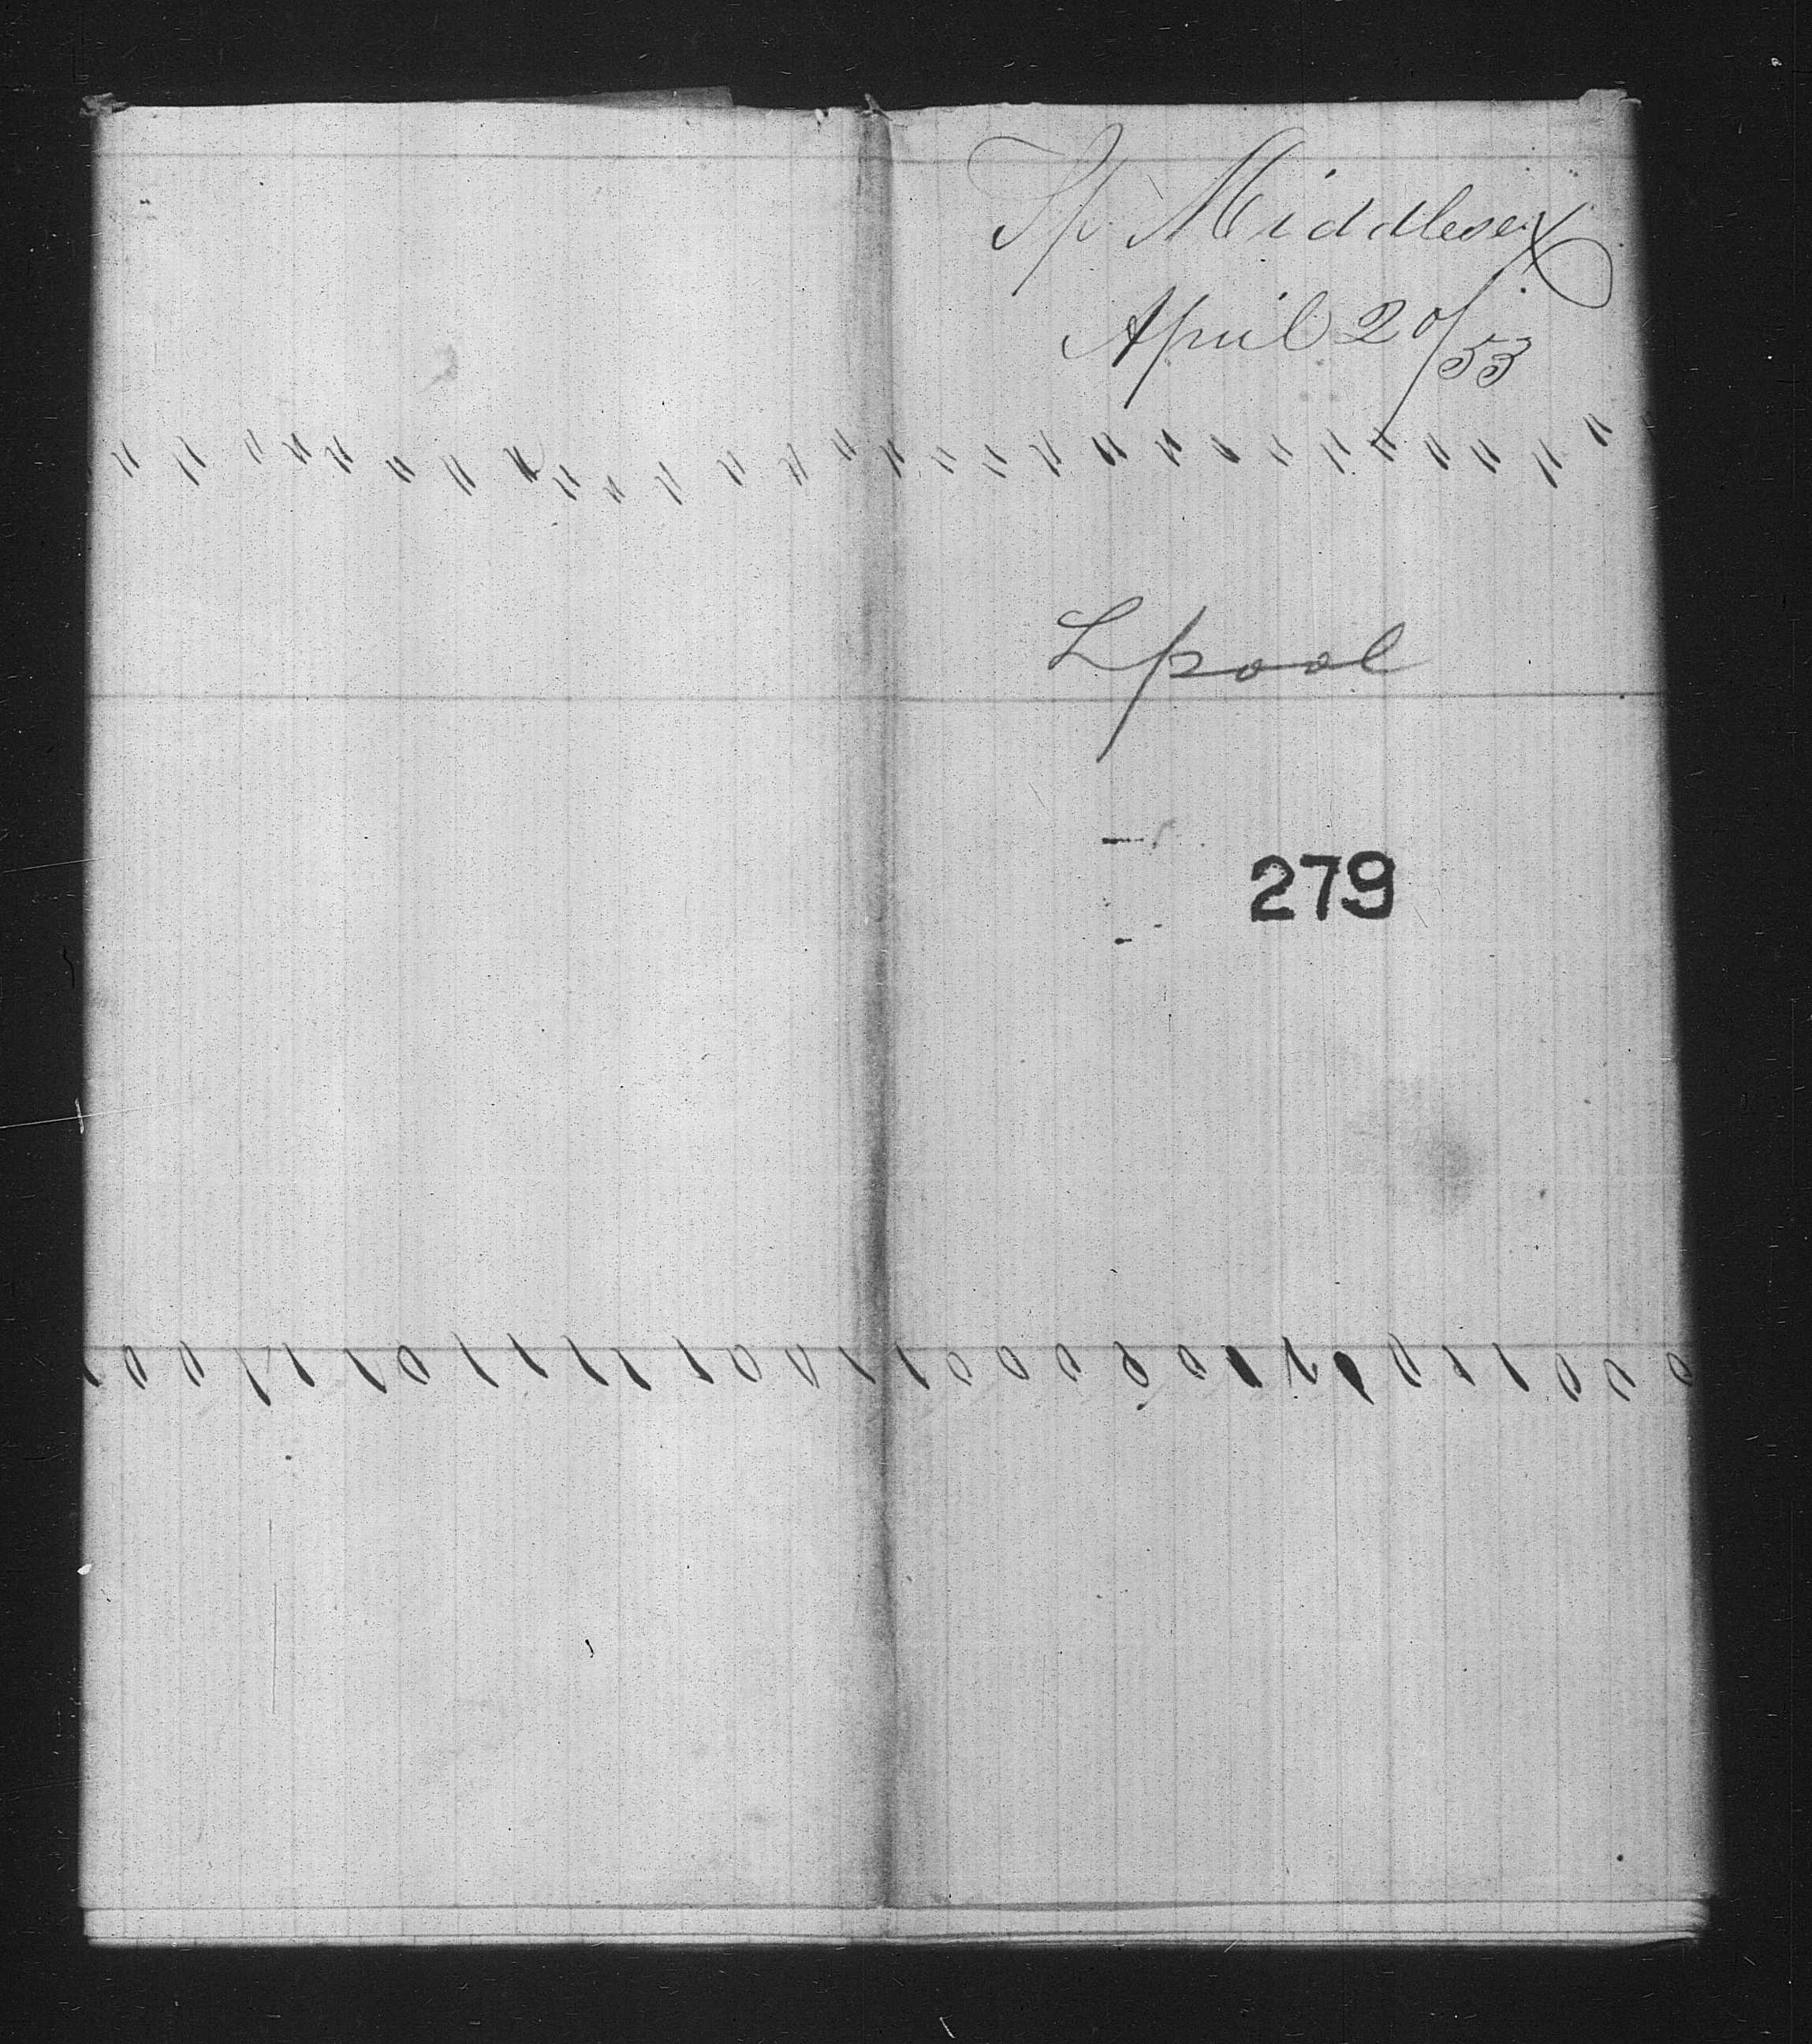 Sp Middlesex
April 20/53
Lpool
279